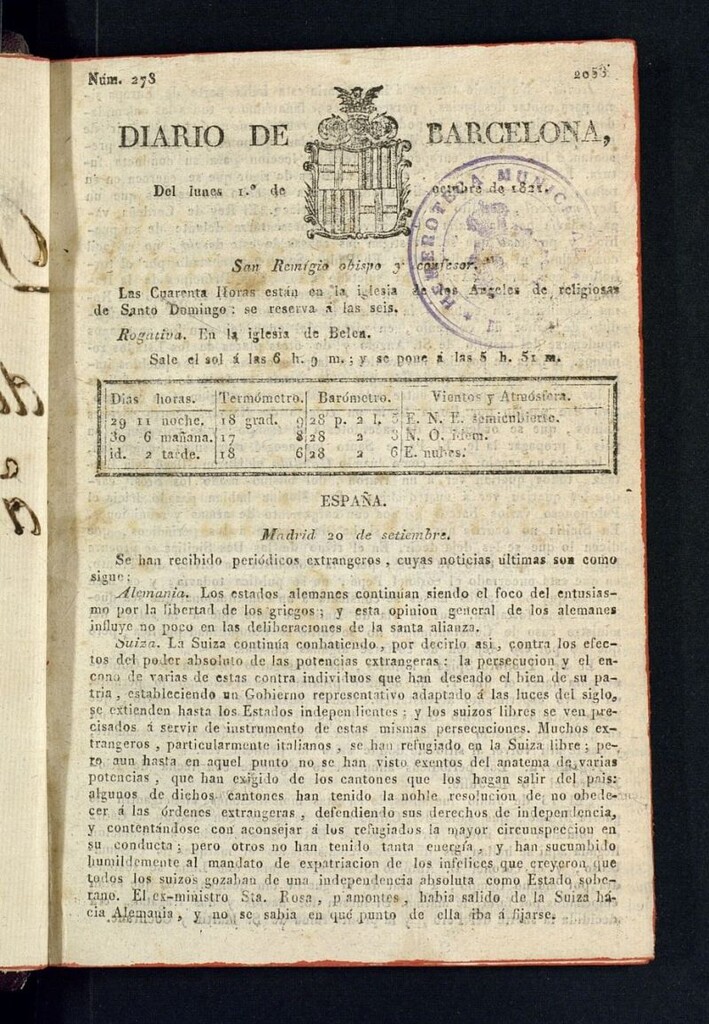 Núm. 278 2053
DIARIO DE BARCELONA,
Del lunes 1.º de octubre de 1821.
HEMEROTECA MUNICIPAL
San Remigio obispo y confesor.
Las Cuarenta Horas están en la iglesia de los Angeles de religiosas
de Santo Domingo: se reserva á las seis.
Rogativa. En la iglesia de Belen.
Sale el sol á las 6 h. 9 m.; y se pone á las 5 h. 51 m.
Dias horas. Termómetro. Barómetro. Vientos y Atmósfera.
29 11 noche. 18 grad. 9 28 p. 2 l. 3 E. N. E. semicubierto.
30 6 mañana. 17 8 28 2 3 N. O. idem.
id. 2 tarde. 18 6 28 2 6 E. nubes.
ESPAÑA.
Madrid 20 de setiembre.
Se han recibido periódicos extrangeros, cuyas noticias últimas son como
sigue:
Alemania. Los estados alemanes continúan siendo el foco del entusias-
mo por la libertad de los griegos; y esta opinion general de los alemanes
influye no poco en las deliberaciones de la santa alianza.
Suiza. La Suiza continúa conbatiendo, por decirlo asi, contra los efec-
tos del poder absoluto de las potencias extrangeras: la persecucion y el en-
cono de varias de estas contra individuos que han deseado el bien de su pa-
tria, estableciendo un Gobierno representativo adaptado á las luces del siglo,
se extienden hasta los Estados independientes; y los suizos libres se ven pre-
cisados á servir de instrumento de estas mismas persecuciones. Muchos ex-
trangeros, particularmente italianos, se han refugiado en la Suiza libre; pe-
ro aun hasta en aquel punto no se han visto exentos del anatema de varias
potencias, que han exigido de los cantones que los hagan salir del pais:
algunos de dichos cantones han tenido la noble resolucion de no obede-
cer á las órdenes extrangeras, defendiendo sus derechos de independencia,
y contentándose con aconsejar á los refugiados la mayor circunspeccion en
su conducta; pero otros no han tenido tanta energía, y han sucumbido
humildemente al mandato de expatriacion de los infelices que creyeron que
todos los suizos gozaban de una independencia absoluta como Estado sobe-
rano. El ex-ministro Sta. Rosa, piamontes, habia salido de la Suiza há-
cia Alemania, y no se sabia en qué punto de ella iba á fijarse.